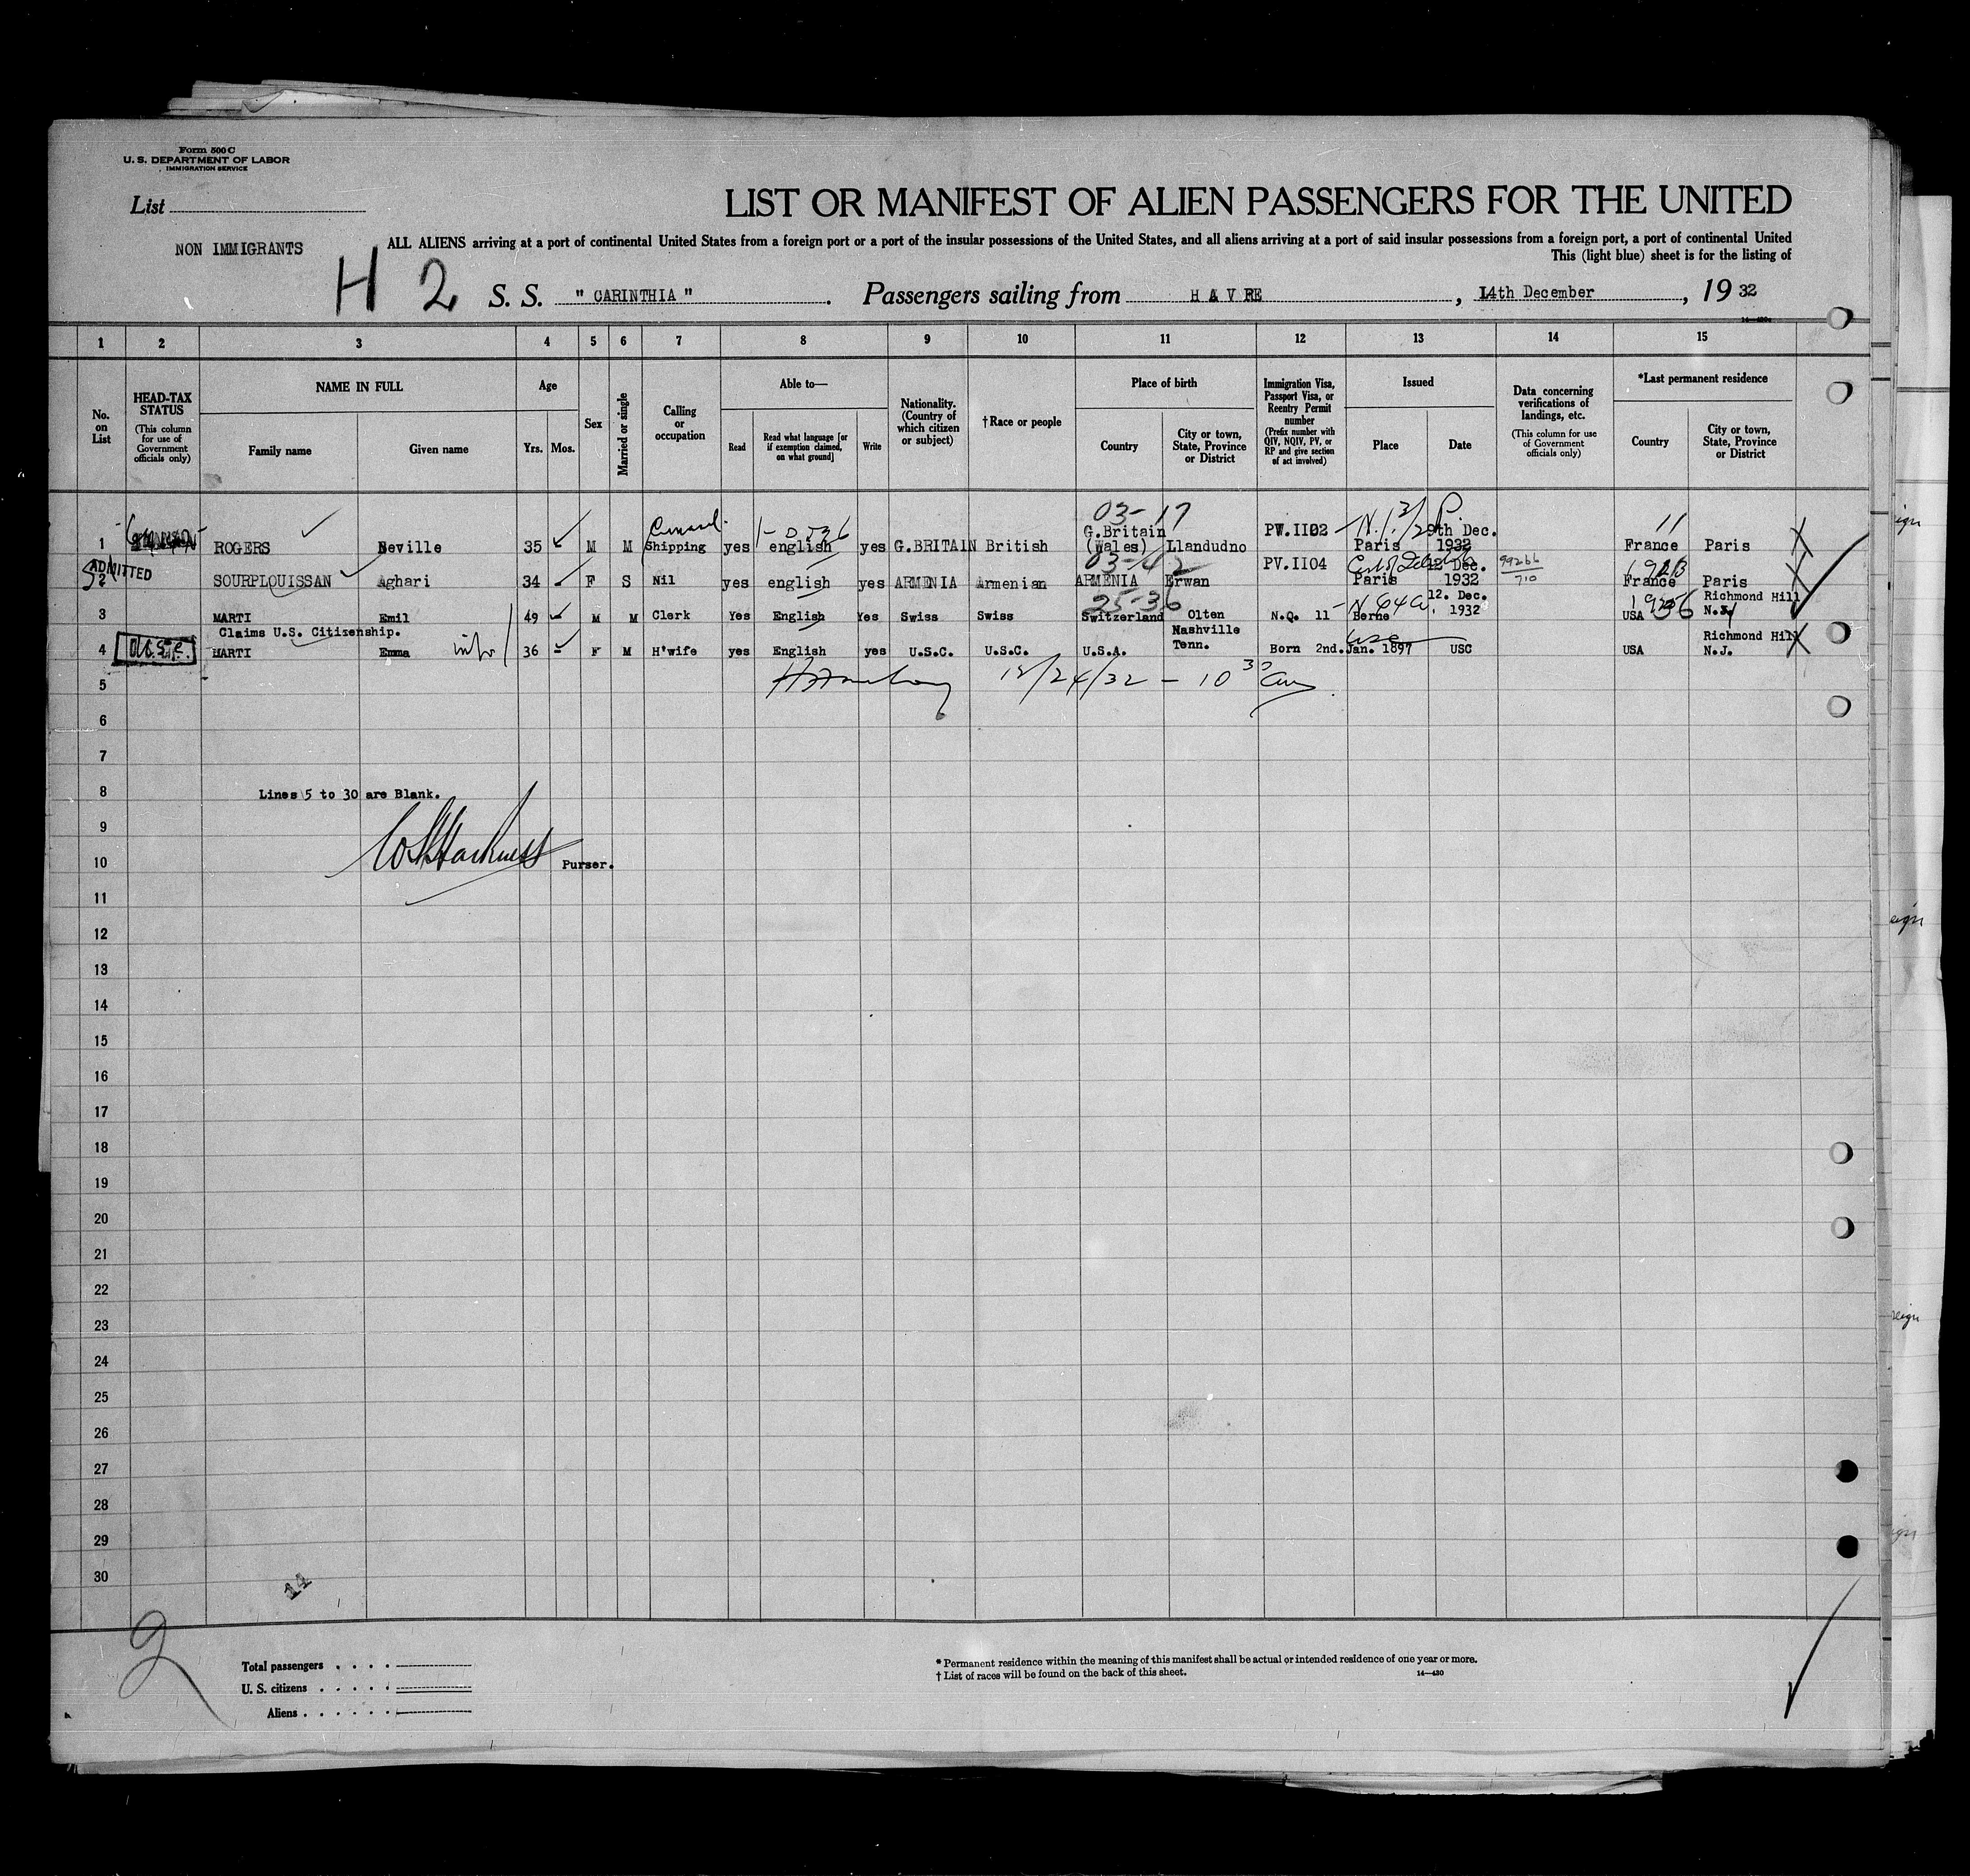 Form 500 C
U. S. DEPARTMENT OF LABOR
IMMIGRATION SERVICE
List
LIST OR MANIFEST OF ALIEN PASSENGERS FOR THE UNITED
NON IMMIGRANTS
ALL ALIENS arriving at a port of continental United States from a foreign port or a port of the insular possessions of the United States, and all aliens arriving at a port of said insular possessions from a foreign port, a port of continental United
This (light blue) sheet is for the listing of
H 2 S. S. " CARINTHIA " . Passengers sailing from HAVRE , 14th December , 19 32
1 2 3 4 5 6 7 8 9 10 11 12 13 14 15
No. on List
HEAD-TAX STATUS (This column for use of Government officials only)
NAME IN FULL
Family name Given name
Age
Yrs. Mos.
Sex
Married or single
Calling or occupation
Able to—
Read Read what language [or if exemption claimed, on what ground] Write
Nationality. (Country of which citizen or subject)
†Race or people
Place of birth
Country City or town, State, Province or District
Immigration Visa, Passport Visa, or Reentry Permit number (Prefix number with QIV, NQIV, PV, or RP and give section of act involved)
Issued
Place Date
Data concerning verifications of landings, etc. (This column for use of Government officials only)
*Last permanent residence
Country City or town, State, Province or District
03-17
1 ROGERS Neville 35 M M Shipping yes english yes G.BRITAIN British G.Britain (Wales) Llandudno PW.II02 Paris 9th Dec. 1932 France Paris
ADMITTED
2 SOURPLOUISSAN Aghari 34 F S Nil yes english yes ARMENIA Armenian ARMENIA Erwan PV.II04 Paris Dec. 1932 99266/710 France Paris
25-36
3 MARTI Emil 49 M M Clerk Yes English Yes Swiss Swiss Switzerland Olten N.Q. 11 Berne 12. Dec. 1932 USA Richmond Hill
Claims U.S. Citizenship.
4 MARTI Emma 36 F M H'wife yes English yes U.S.C. U.S.C. U.S.A. Nashville Tenn. Born 2nd.Jan. 1897 USC USA Richmond Hill N.J.
5 12/24/32 – 10 30
6
7
8 Lines 5 to 30 are Blank.
9
10 Purser.
11
12
13
14
15
16
17
18
19
20
21
22
23
24
25
26
27
28
29
30
2
Total passengers
U. S. citizens
Aliens
* Permanent residence within the meaning of this manifest shall be actual or intended residence of one year or more.
† List of races will be found on the back of this sheet. 14—430